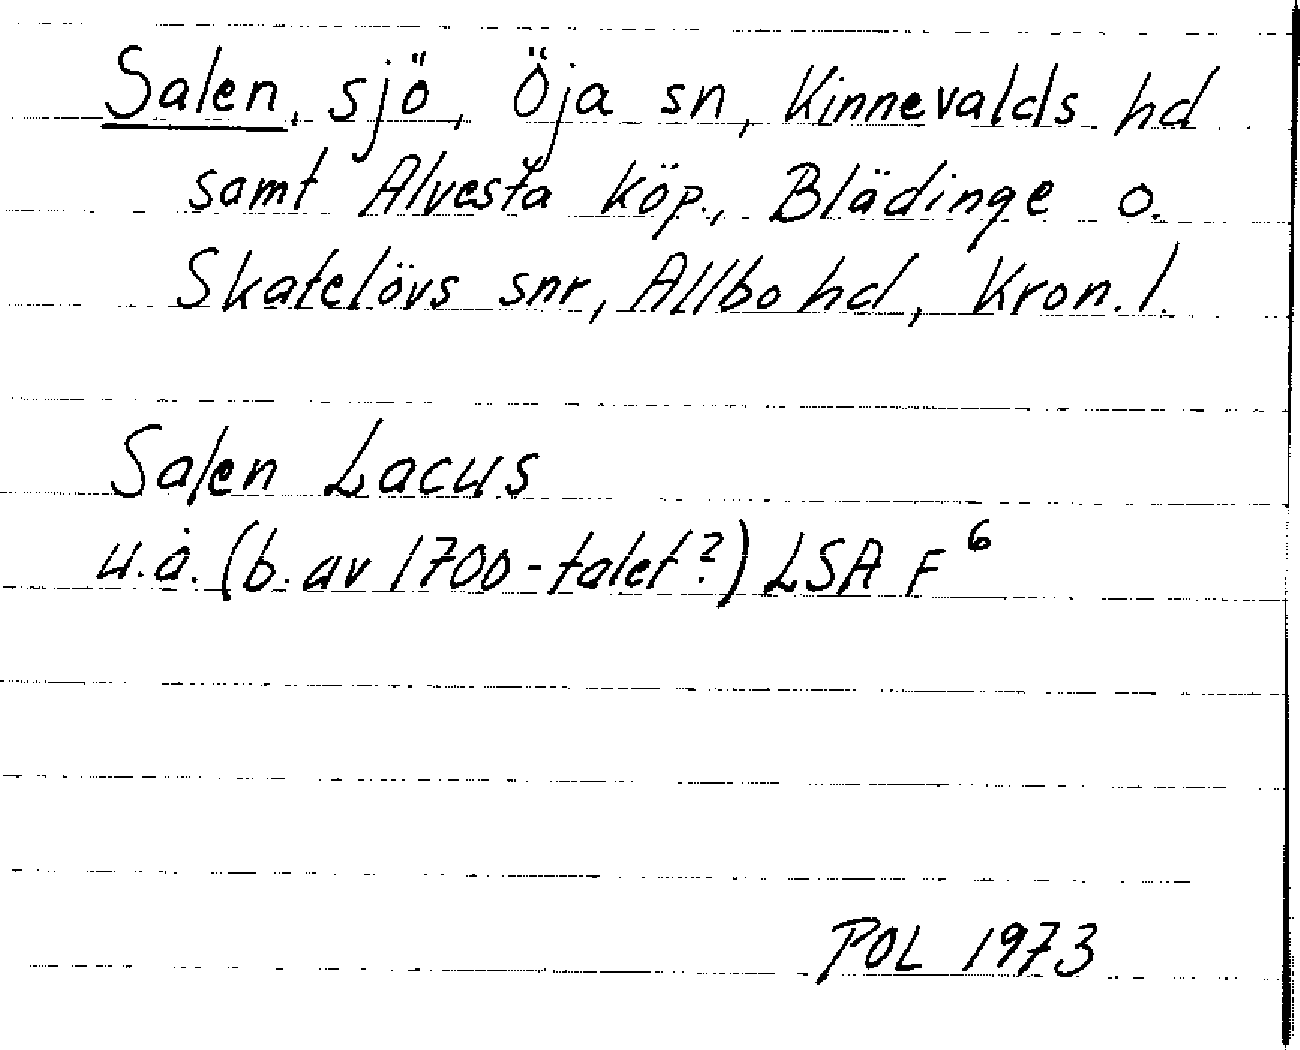 Salen, sjö, Öja sn, Kinnevalds hd
samt Alvesta köp., Blädinge o.
Skatelövs snr, Allbo hd, Kron. l.
Salen Lacus
u.å. (b. av 1700-talet?) LSA F⁶
POL 1973